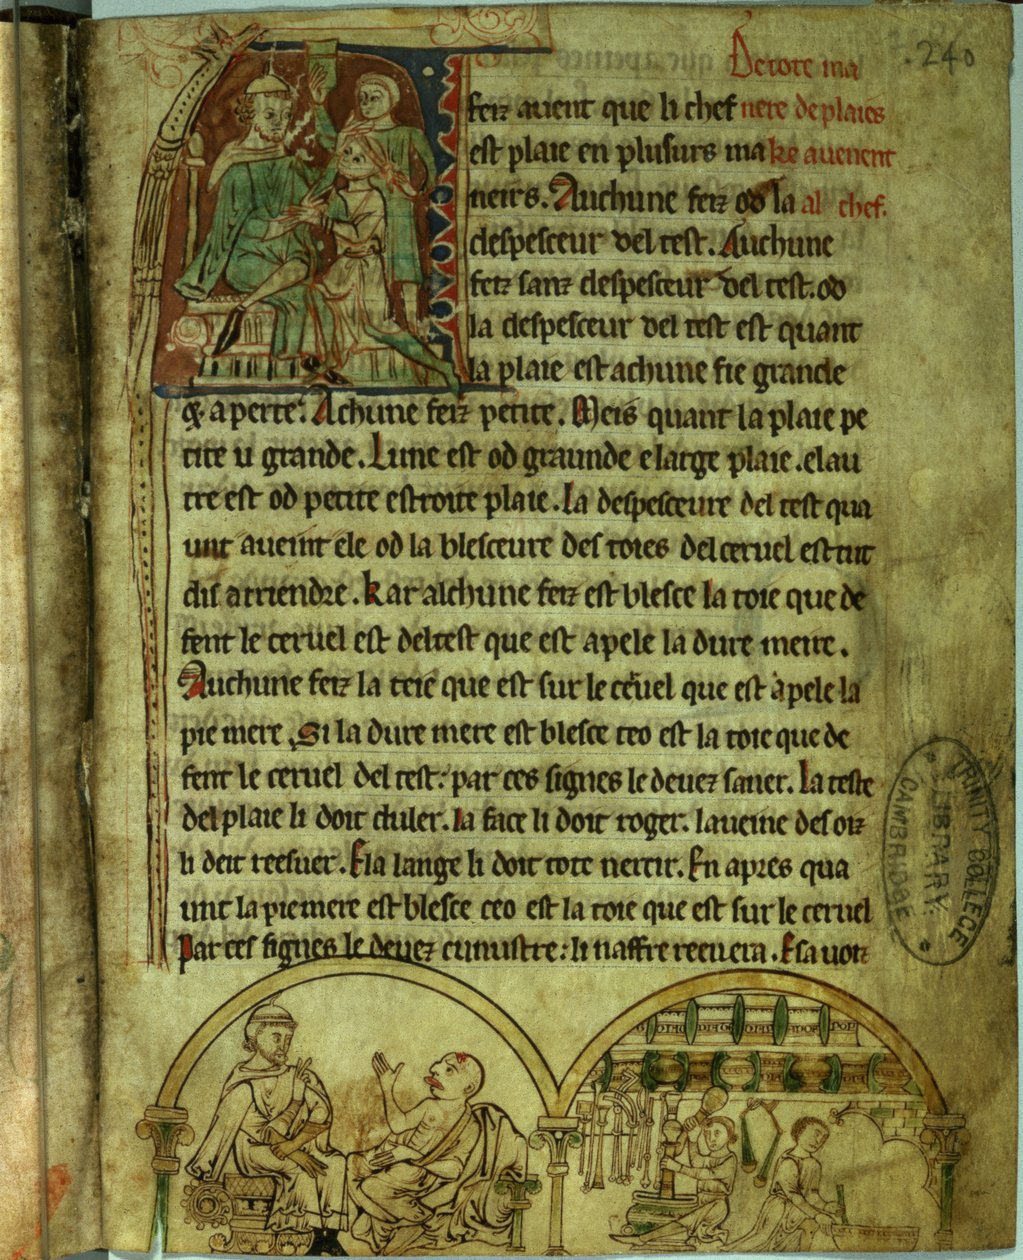 De tote ma
nere de plaies
ke avenent
al chef.
.240
feiz avent que li chef
est plaie en plusurs ma
neirs. Auchune feiz od la
despesceur del test. Auchune
feiz sanz despesceur del test. od
la despesceur del test est quant
la plaie est achune fie grande
& aperte. Achune feiz petite. Meis quant la plaie pe
tite u grande. Lune est od graunde e large plaie. e lau
tre est od petite estroite plaie. La despesceure del test qua
unt aveint ele od la blesceure des toies del cervel est tut
dis atriendre. Kar alchune feiz est blesce la toie que de
fent le cervel est del test que est apele la dure mere.
Auchune feiz la teie que est sur le cervel que est apele la
pie mere. Si la dure mere est blesce ceo est la toie que de
fent le cervel del test: par ces signes le devez saver. La teste
del plaie li doit duler. la face li doit roger. la veine des oiz
li deit reesuer. E la lange li doit tote nercir. En apres qua
unt la pie mere est blesce ceo est la toie que est sur le cervel
Par ces signes le devez cunustre: li naffre recuvera. E sa voiz
TRINITY COLLEGE
LIBRARY.
CAMBRIDGE